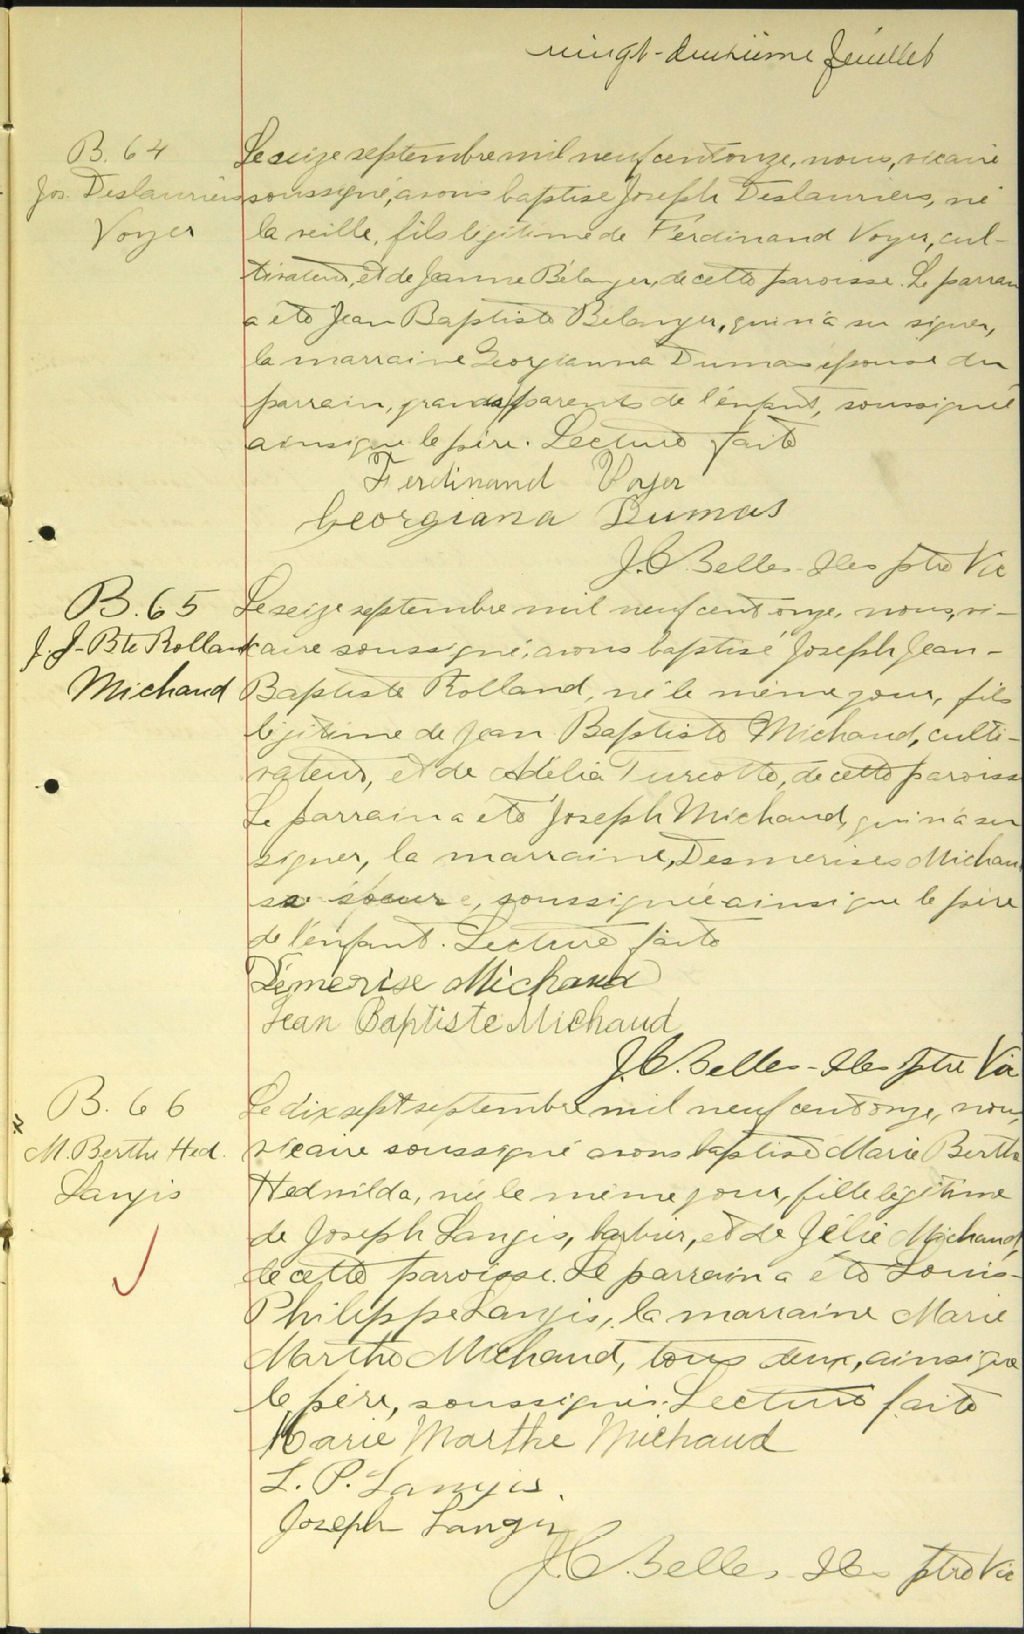 vingt-deuxième feuillet
B. 64
Jos. Deslauriers
Voyer
Le seize septembre mil neuf cent onze, nous, vicaire
soussigné, avons baptisé Joseph Deslauriers, né
la veille, fils légitime de Ferdinand Voyer, cul-
tivateur, et de Jeanne Bélanger, de cette paroisse. Le parrain
a été Jean Baptiste Bélanger, qui n'a su signer,
la marraine Georgianna Dumas épouse du
parrain, grands parents de l'enfant, soussignée
ainsi que le père. Lecture faite
Ferdinand Voyer
Georgiana Dumas
J.C. Belles-Iles ptre Vic
B. 65
J. J-Bte Rolland
Michaud
Le seize septembre mil neuf cent onze, nous, vi-
caire soussigné, avons baptisé Joseph Jean-
Baptiste Rolland, né le même jour, fils
légitime de Jean Baptiste Michaud, culti-
vateur, et de Adélia Turcotte, de cette paroisse
Le parrain a été Joseph Michaud, qui n'a su
signer, la marraine, Desmerises Michaud
sa soeur, soussignée ainsi que le père
de l'enfant. Lecture faite
Démerise Michaud
Jean Baptiste Michaud
J.C. Belles-Iles ptre Vic
B. 66
M. Berthe Hed.
Langis
Le dix sept septembre mil neuf cent onze, nous,
vicaire soussigné avons baptisé Marie Berthe
Hedwilda, née le même jour, fille légitime
de Joseph Langis, barbier, et de Célie Michaud,
de cette paroisse. Le parrain a été Louis-
Philippe Langis, la marraine Marie
Marthe Michaud, tous deux, ainsi que
le père, soussignés. Lecture faite
Marie Marthe Michaud
L. P. Langis.
Joseph Langis
J.C. Belles-Iles ptre Vic